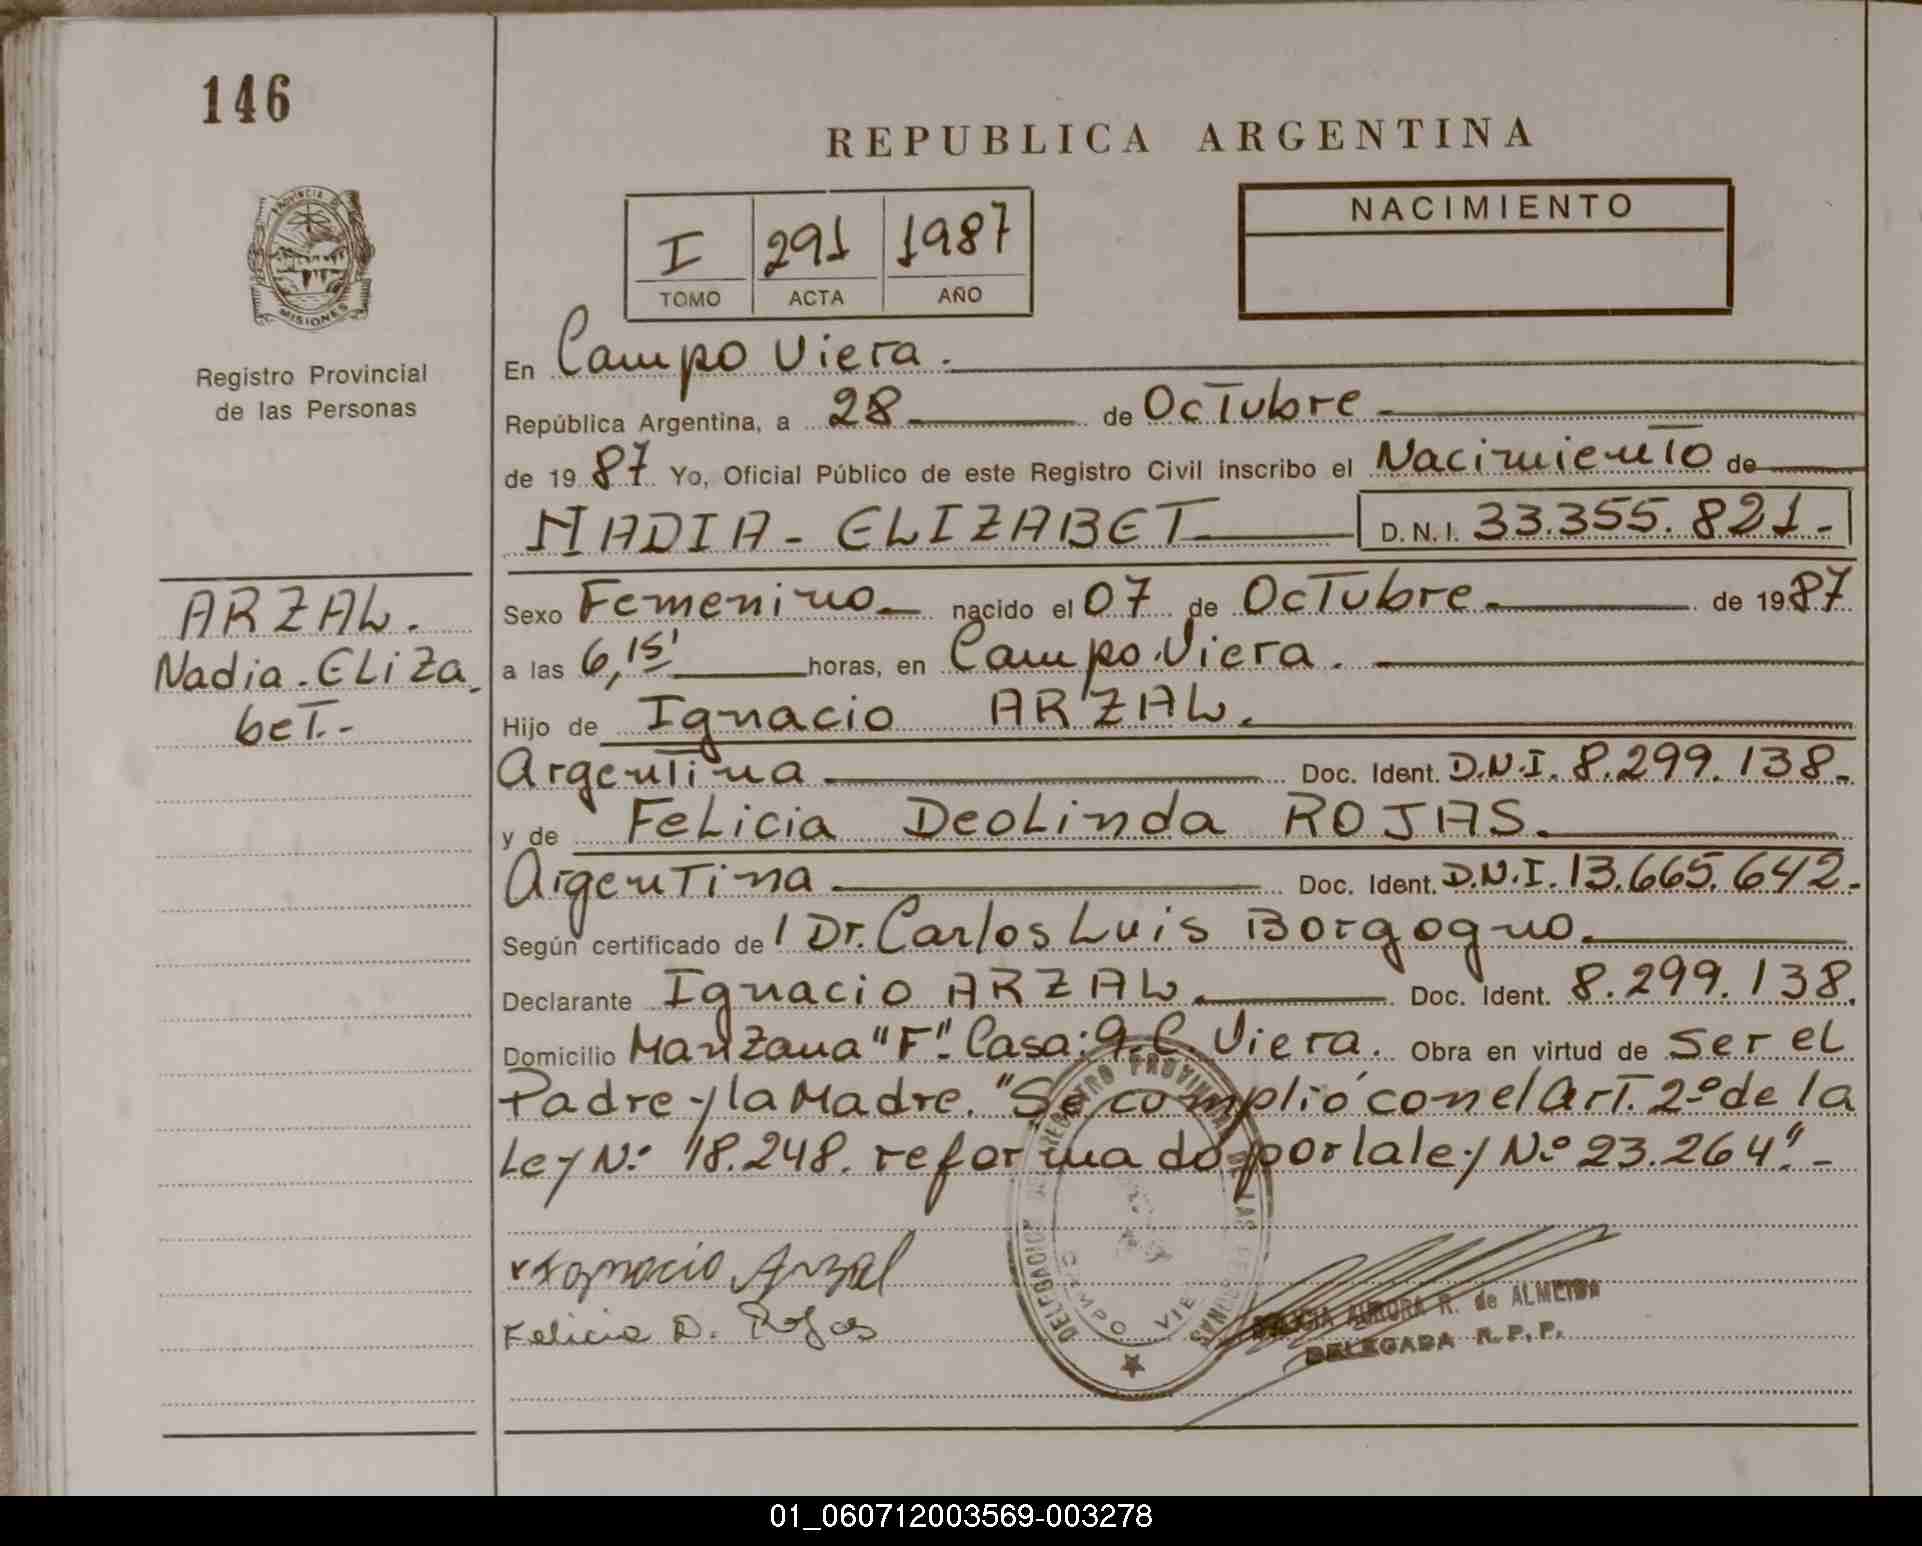 146
REPUBLICA ARGENTINA
PROVINCIA DE
MISIONES
Registro Provincial
de las Personas
I 291 1987
TOMO ACTA AÑO
NACIMIENTO
En Campo Viera.
República Argentina, a 28 de Octubre
de 1987 Yo, Oficial Público de este Registro Civil inscribo el Nacimiento de
NADIA - ELIZABET D.N.I. 33.355.821.-
ARZAL.
Nadia. ELiZa
bet.-
Sexo Femenino nacido el 07 de Octubre de 1987
a las 6,15' horas, en Campo Viera.
Hijo de Ignacio ARZAL.
Argentina Doc. Ident. D.N.I. 8.299.138.
y de FeLicia DeoLinda ROJAS.
Argentina Doc. Ident. D.N.I. 13.665.642.-
Según certificado de l Dr. Carlos Luis Borgogno.
Declarante Ignacio ARZAL. Doc. Ident. 8.299.138.
Domicilio Manzana "F". Casa: 9. C. Viera. Obra en virtud de Ser el
Padre y la Madre. "Se cumplió con el Art. 2º de la
Ley Nº 18.248. reformado por la ley Nº 23.264".-
Ignacio Arzal
Felicia D. Rojas
CAMPO VIE
AURORA R. de ALMEIDA
DELEGADA R.P.P.
01_060712003569-003278